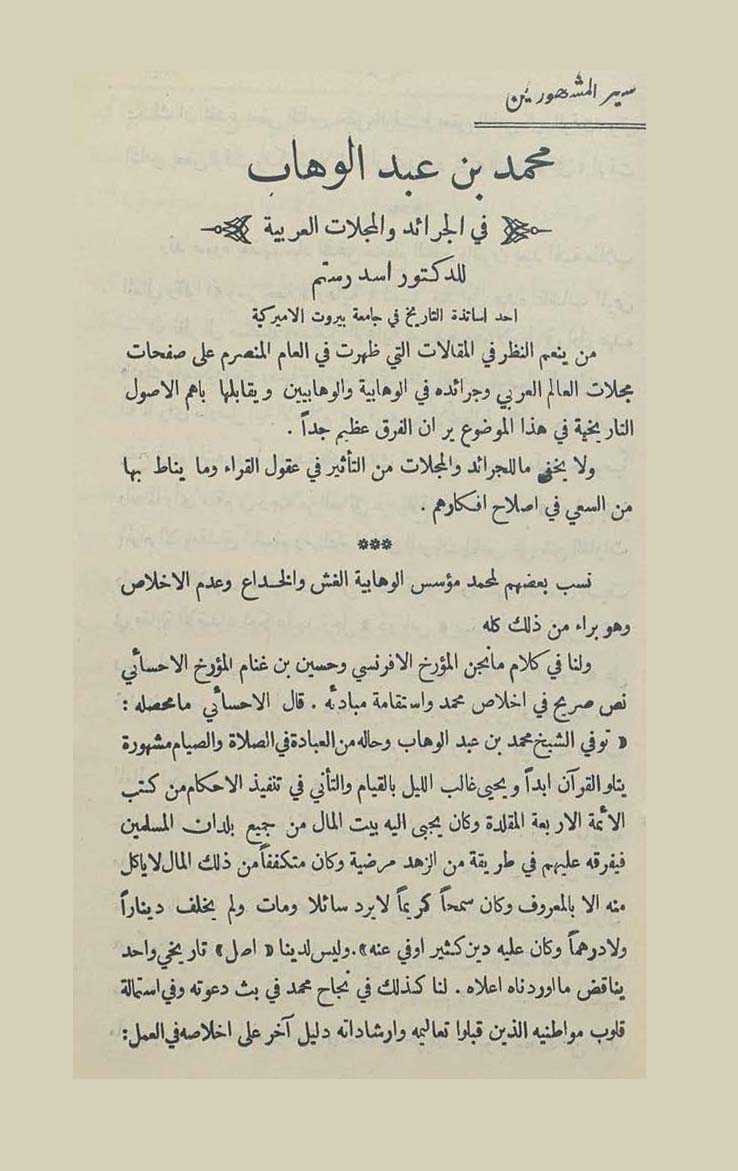 سير المشهورين
محمد بن عبد الوهاب
في الجرائد والمجلات العربية
للدكتور اسد رستم
احد اساتذة التاريخ في جامعة بيروت الاميركية
من ينعم النظر في المقالات التي ظهرت في العام المنصرم على صفحات
مجلات العالم العربي وجرائده في الوهابية والوهابيين ويقابلها باهم الاصول
التاريخية في هذا الموضوع ير ان الفرق عظيم جداً .
ولا يخفى ما للجرائد والمجلات من التأثير في عقول القراء وما يناط بها
من السعي في اصلاح افكارهم .
***
نسب بعضهم لمحمد مؤسس الوهابية الغش والخداع وعدم الاخلاص
وهو براء من ذلك كله
ولنا في كلام مانجن المؤرخ الافرنسي وحسين بن غنام المؤرخ الاحسائي
نص صريح في اخلاص محمد واستقامة مبادئه . قال الاحسائي ما محصله :
« توفي الشيخ محمد بن عبد الوهاب وحاله من العبادة في الصلاة والصيام مشهورة
يتلو القرآن ابداً ويحيى غالب الليل بالقيام والتأني في تنفيذ الاحكام من كتب
الائمة الاربعة المقلدة وكان يجبى اليه بيت المال من جميع بلدان المسلمين
فيفرقه عليهم في طريقة من الزهد مرضية وكان متكففاً من ذلك المال لا ياكل
منه الا بالمعروف وكان سمحاً كريماً لا يرد سائلا ومات ولم يخلف ديناراً
ولا درهماً وكان عليه دين كثير اوفي عنه». وليس لدينا « اصل » تاريخي واحد
يناقض ما اوردناه اعلاه . لنا كذلك في نجاح محمد في بث دعوته وفي استمالة
قلوب مواطنيه الذين قبلوا تعاليمه وارشاداته دليل آخر على اخلاصه في العمل: